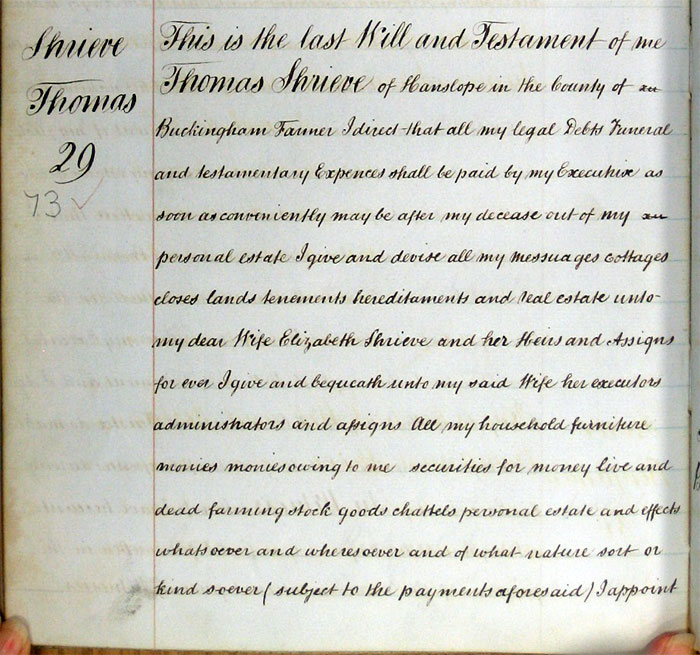 Shrieve
Thomas
29
73 ✓
This is the last Will and Testament of me
Thomas Shrieve of Hanslope in the County of
Buckingham Farmer I direct that all my legal Debts Funeral
and testamentary Expences shall be paid by my Executrix as
soon as conveniently may be after my decease out of my
personal estate I give and devise all my messuages cottages
closes lands tenements hereditaments and real estate unto
my dear Wife Elizabeth Shrieve and her Heirs and Assigns
for ever I give and bequeath unto my said Wife her executors
administrators and assigns All my household furniture
monies monies owing to me securities for money live and
dead farming stock goods chattels personal estate and effects
whatsoever and wheresoever and of what nature sort or
kind soever (subject to the payments aforesaid) I appoint